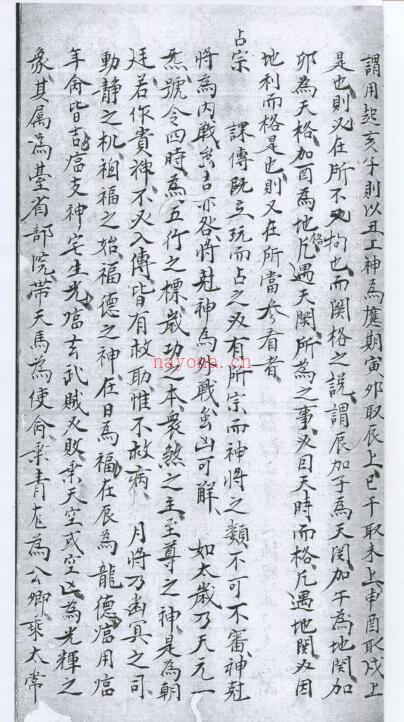 謂用起亥子則以丑上神為應期寅卯取辰上巳午取未上申酉取戌上
是也則又在所不必拘也而関格之說謂辰加子為天関加午為地関加
卯為天格加酉為地格凡遇天関所為之事必因天時而格凡遇地関必因
地利而格是也則又在所當參看者
占宗 課傳既立玩而占之必有所宗而神將之類不可不審神尅
將為内戰雖吉亦咎將尅神為外戰雖凶可解 如太歲乃天元一
炁號令四時為五行之標歲功之本衆煞之主至尊之神是為朝
廷若作貴神不必入傳皆有救助惟不救病 月將乃幽冥之司
動静之机禍福之始福德之神在日為福在辰為龍德臨用臨
年命皆吉臨支神宅生光臨玄武賊必敗乘天空或空亡為光輝之
象其属為臺省部院帶天馬為使命乘青龍為公卿乘太常
nayona.cn